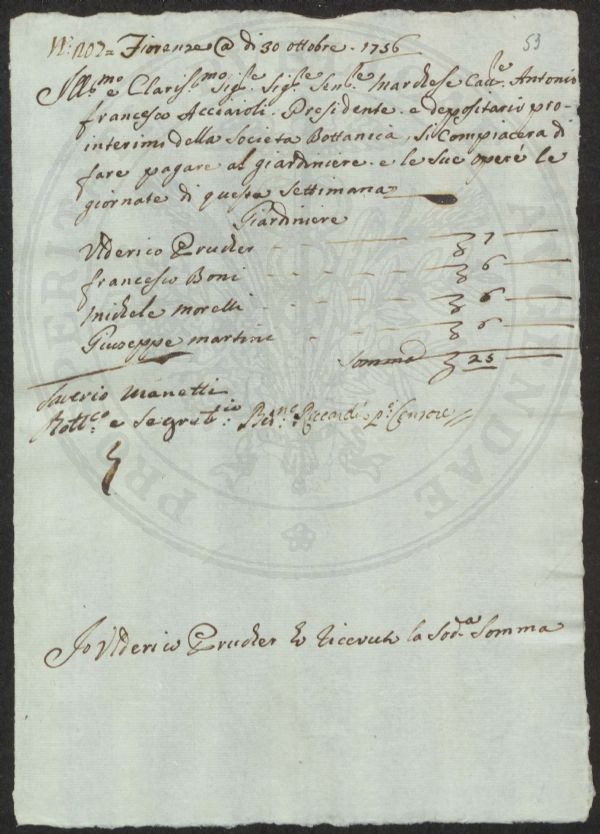 53
N.º 1202 = Fiorenze @ di 30 ottobre - 1756
Ill.mo e Clariss.mo Sig.re Sig.re Sen.re Marchese Cav.re Antonio
francesco Acciaioli - Presidente - e depositario pro-
interim della Societa Bottanica, Si Compiacera di
fare pagare al giardiniere - e le Sue opere le
giornate di questa Settimana
Giardiniere
Vlderico Prucker 7
francesco Boni 6
Michele morelli 6
Giuseppe martini 6
Somma 25
Saverio Manetti
Bott.co e Segret.rio Ber.no Riccardi p.º Censore
Io Vlderico Prucker ho riceuuto la Sod.a Somma
PROSPERITATI AUGENDAE